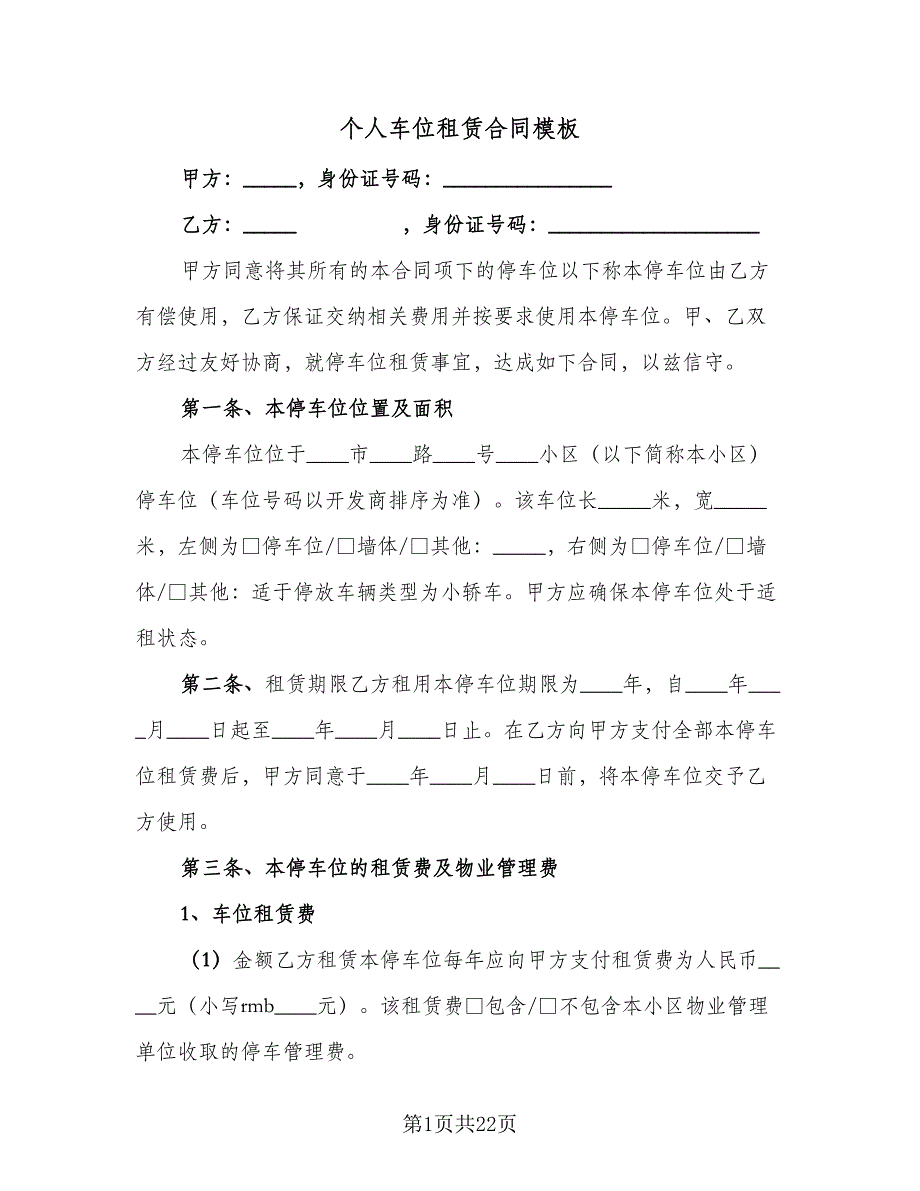 个人车位租赁合同模板
甲方：_____，身份证号码：________________
乙方：_____ ，身份证号码：____________________
甲方同意将其所有的本合同项下的停车位以下称本停车位由乙方
有偿使用，乙方保证交纳相关费用并按要求使用本停车位。甲、乙双
方经过友好协商，就停车位租赁事宜，达成如下合同，以兹信守。
第一条、本停车位位置及面积
本停车位位于____市____路____号____小区（以下简称本小区）
停车位（车位号码以开发商排序为准）。该车位长_____米，宽_____
米，左侧为□停车位/□墙体/□其他：_____，右侧为□停车位/□墙
体/□其他：适于停放车辆类型为小轿车。甲方应确保本停车位处于适
租状态。
第二条、租赁期限乙方租用本停车位期限为____年，自____年___
_月____日起至____年____月____日止。在乙方向甲方支付全部本停车
位租赁费后，甲方同意于____年____月____日前，将本停车位交予乙
方使用。
第三条、本停车位的租赁费及物业管理费
1、车位租赁费
（1）金额乙方租赁本停车位每年应向甲方支付租赁费为人民币__
__元（小写rmb____元）。该租赁费□包含/□不包含本小区物业管理
单位收取的停车管理费。
第1页共22页